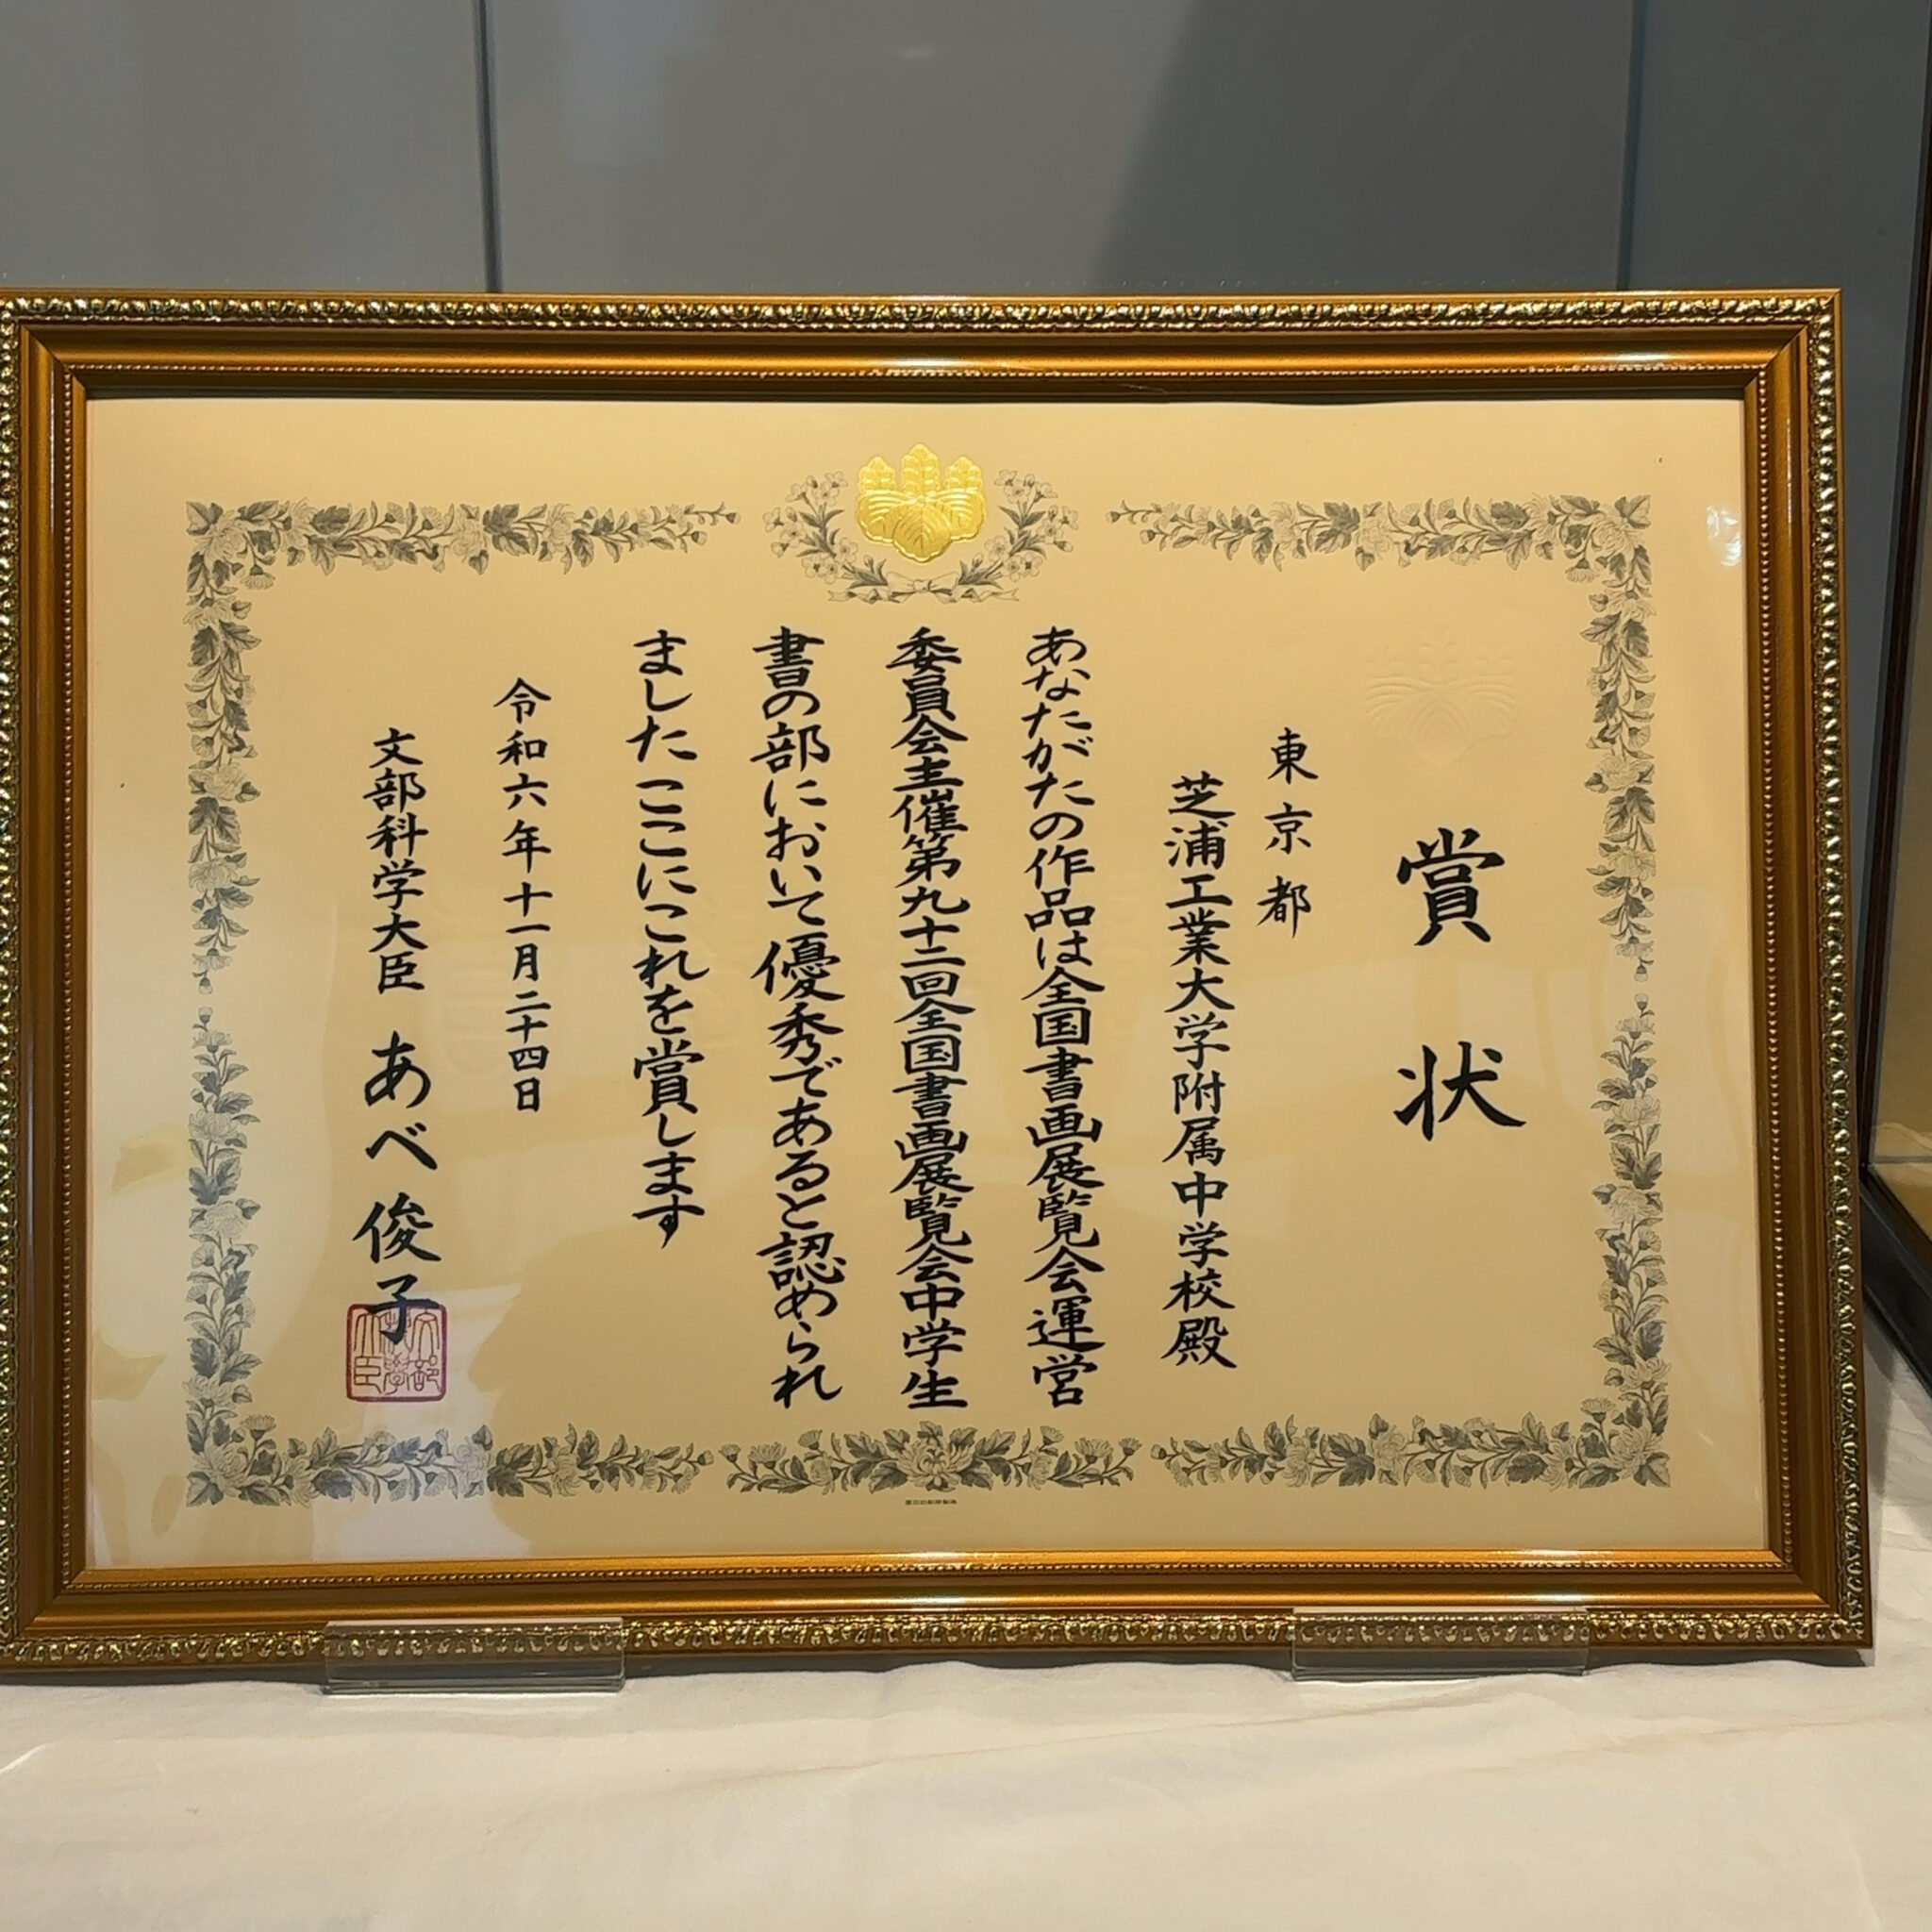 賞状
東京都
芝浦工業大学附属中学校殿
あなたがたの作品は全国書画展覧会運営
委員会主催第九十二回全国書画展覧会中学生
書の部において優秀であると認められ
ましたここにこれを賞します
令和六年十一月二十四日
文部科学大臣 あべ俊子